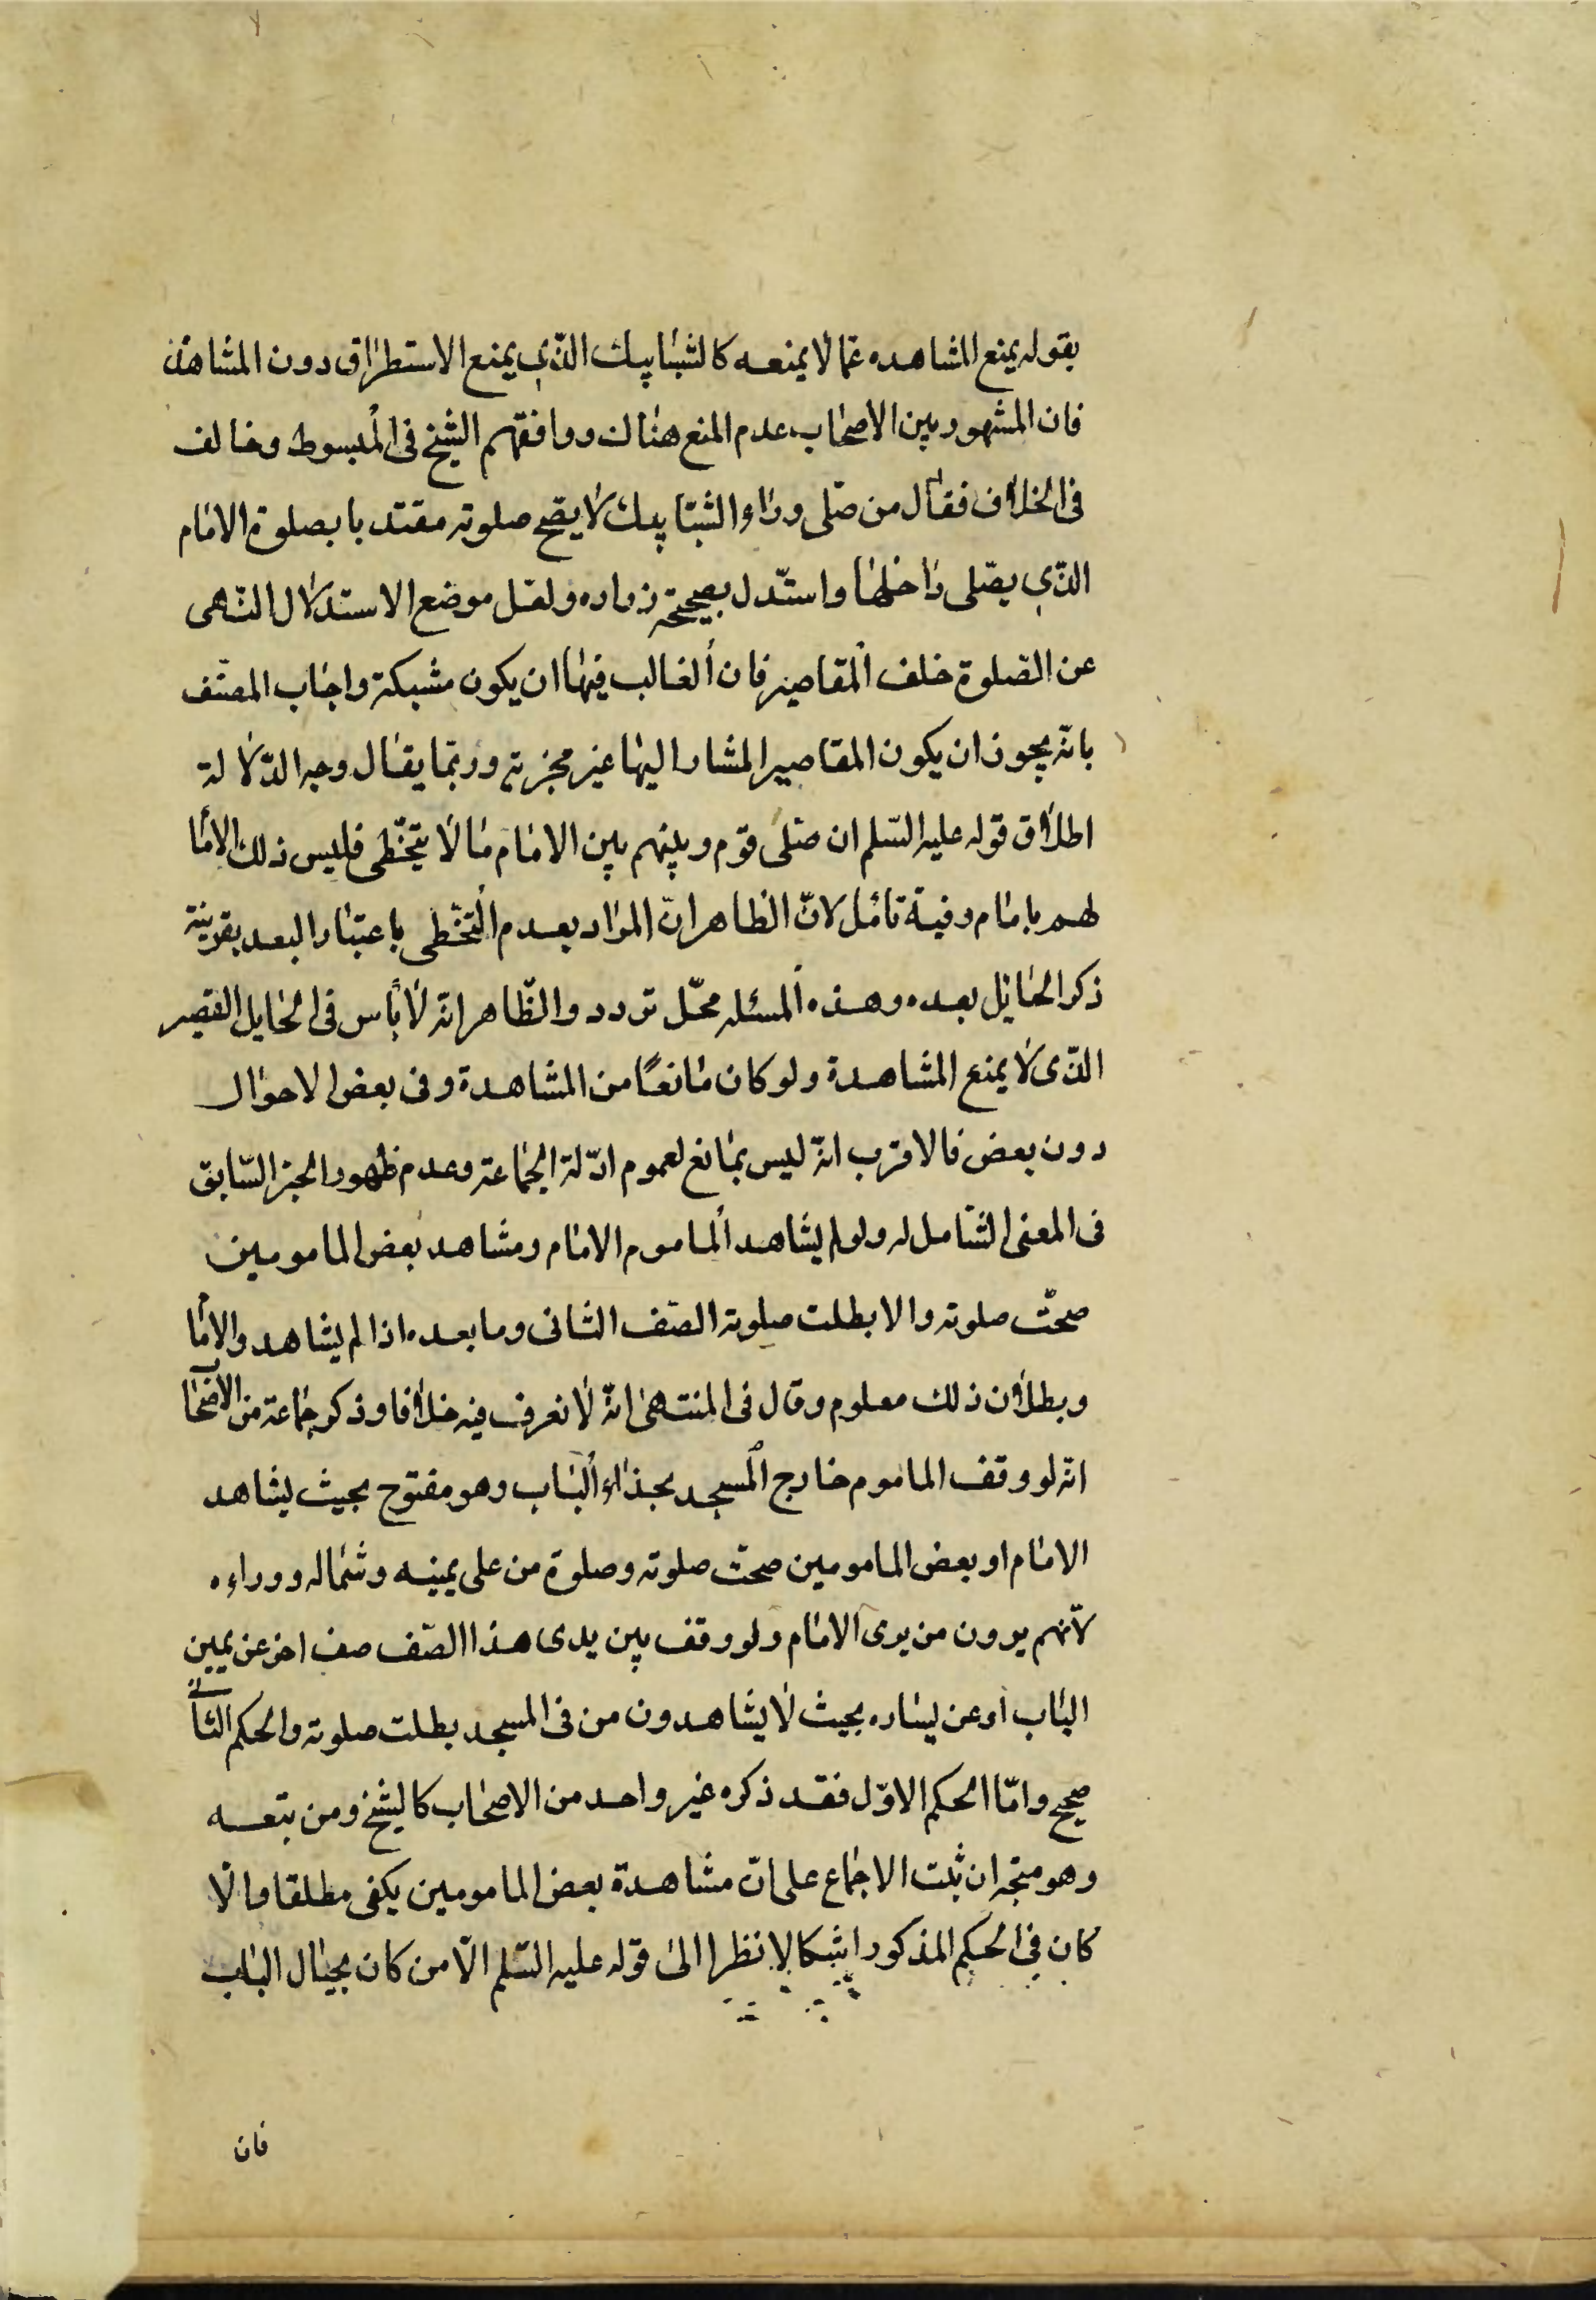 بقوله يمنع المشاهده عمّا لا يمنعه كالشبابيك الذي يمنع الاستطراق دون المشاهدة
فان المشهور بين الاصحاب عدم المنع هناك ووافقهم الشيخ فى المبسوط وخالف
فى الخلاف فقال من صلى وراء الشبابيك لا يصح صلوته مقتديا بصلوة الامام
الذي يصلى داخلها واستدل بصحيحة زراره ولعل موضع الاستدلال النهى
عن الصلوة خلف المقاصير فان الغالب فيها ان يكون مشبكة واجاب المصنف
بانه يجوز ان يكون المقاصير المشار اليها غير مخرمة وربما يقال وجه الدلالة
اطلاق قوله عليه السلم ان صلى قوم وبينهم بين الامام ما لا يتخطى فليس ذلك الاما
لهم بامام وفيه تامل لان الظاهر ان المراد بعدم التخطى باعتبار البعد بقرينة
ذكر الحائل بعده وهذه المسئله محل تردد والظاهر انه لا باس فى الحايل القصير
الذى لا يمنع المشاهدة ولو كان مانعًا من المشاهدة وفى بعض الاحوال
دون بعض فالاقرب انه ليس بمانع لعموم ادلة الجماعة وعدم ظهور الخبر السابق
فى المعنى الشامل له ولو لم يشاهد الماموم الامام ومشاهد بعض المامومين
صحت صلوته والا بطلت صلوته الصف الثانى وما بعده اذا لم يشاهد والاما
وبطلان ذلك معلوم وقال فى المنتهى انه لا نعرف فيه خلافا وذكر جماعة من الاصحاب
انه لو وقف الماموم خارج المسجد بحذاء الباب وهو مفتوح بحيث يشاهد
الامام او بعض المامومين صحت صلوته وصلوة من على يمينه وشماله ووراءه
لانهم يرون من يرى الامام ولو وقف بين يدى هذا الصف صف اخر عن يمين
الباب او عن يساره بحيث لا يشاهدون من فى المسجد بطلت صلوته والحكم الثانى
صحيح وامّا الحكم الاوّل فقد ذكره غير واحد من الاصحاب كالشيخ ومن تبعه
وهو متجه ان ثبت الاجماع على ان مشاهدة بعض المامومين يكفى مطلقا والا
كان فى الحكم المذكور اشكالا نظرا الى قوله عليه السلم الّا من كان بحيال الباب
فان